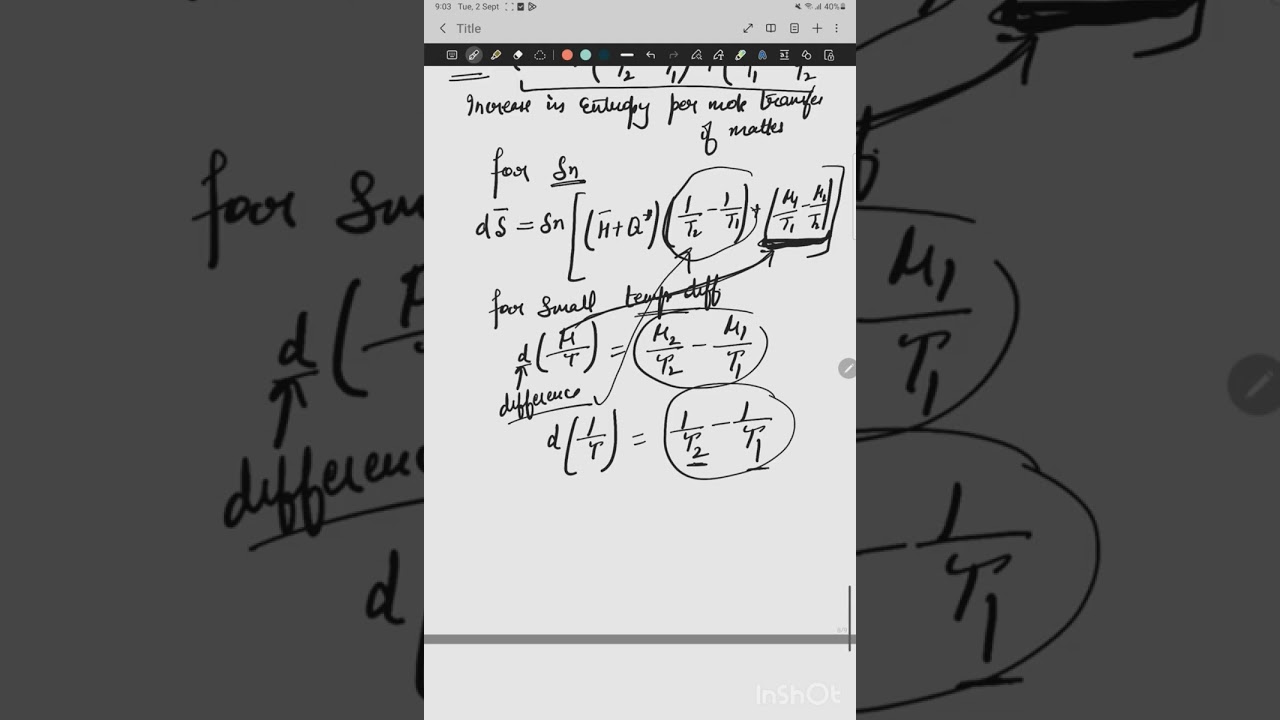 9:03 Tue, 2 Sept 40%
Title
T₂ T₁ T₁ T₂
Increase in Entropy per mole transfer
of matter
for δn
dS̄ = δn [ (H̄ + Q*) ( 1/T₂ - 1/T₁ ) + ( μ₁/T₁ - μ₂/T₂ ) ]
for small temp diff
d ( μ/T ) = ( μ₂/T₂ - μ₁/T₁ )
difference
d ( 1/T ) = ( 1/T₂ - 1/T₁ )
InShOt
for Sma
μ₁
d ( T₁
difference
1
d T₁